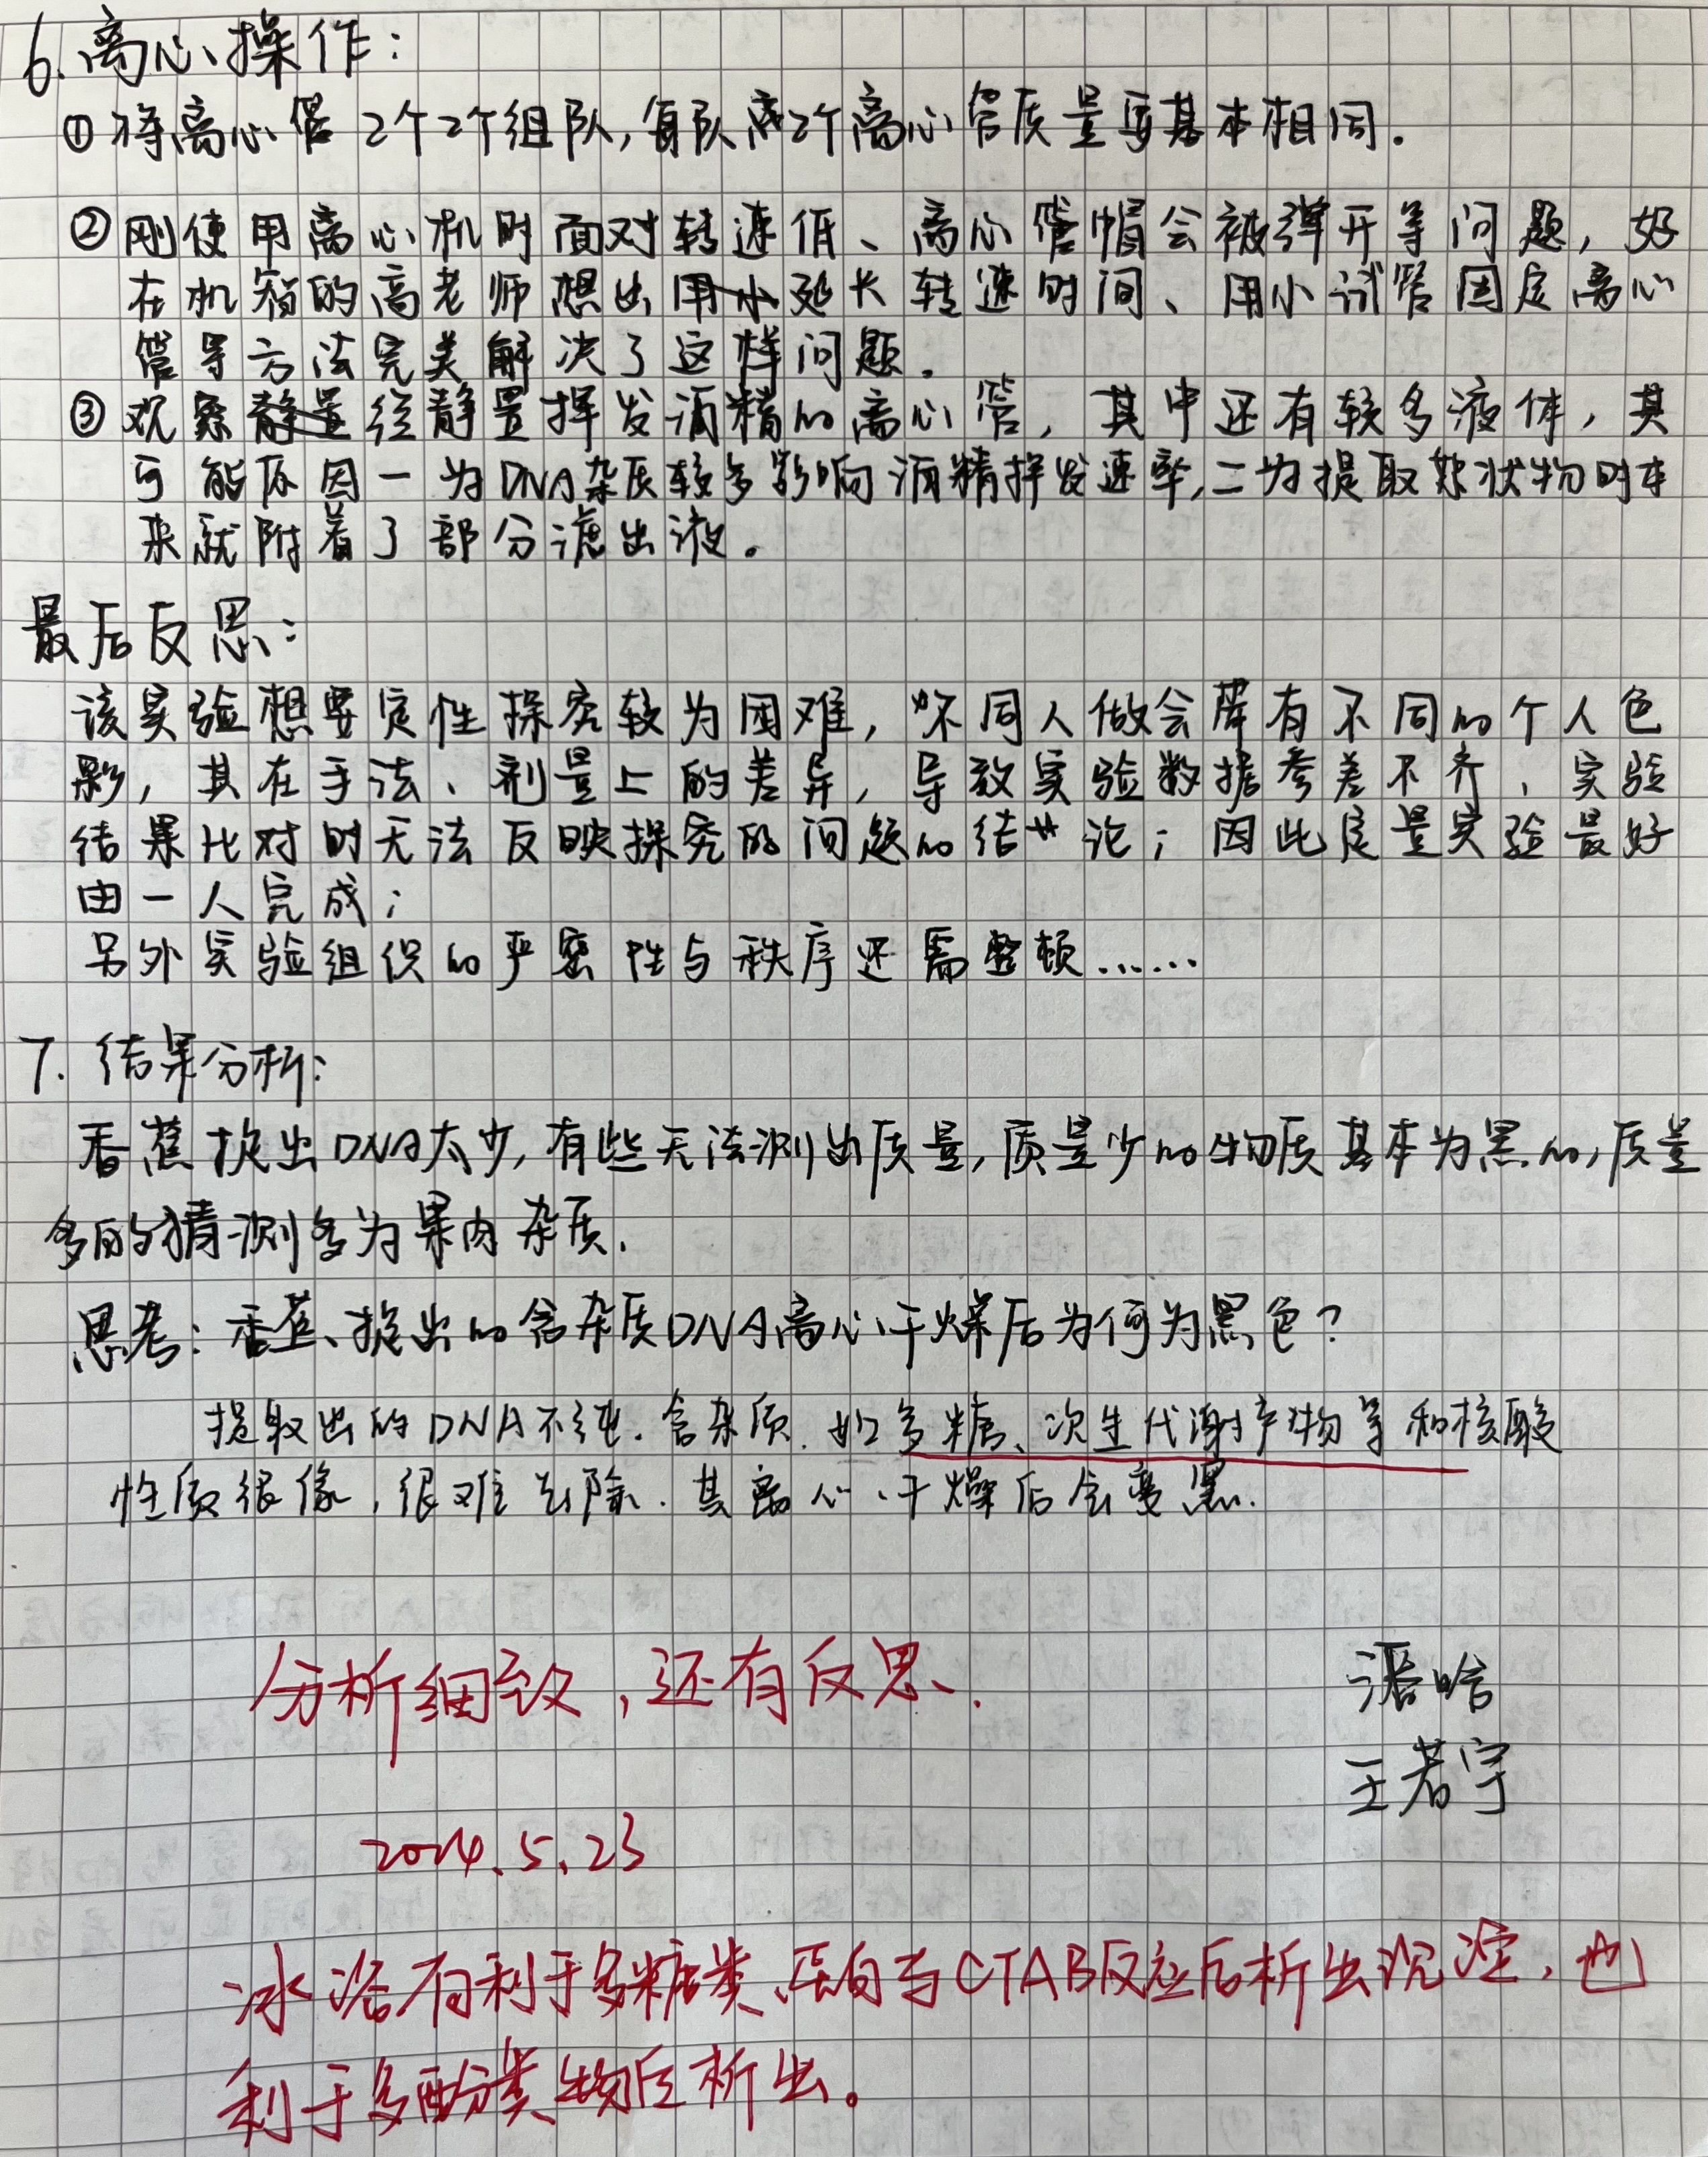 6.离心操作:
①将离心管2个2个组队,每队成2个离心管质量要基本相同.
②刚使用离心机时面对转速低、离心管帽会被弹开等问题,好
在机智的高老师想出用小延长转速时间、用小试管固定离心
管等方法完美解决了这样问题。
③观察静置经静置挥发酒精的离心管,其中还有较多液体,其
可能原因一为DNA杂质较多影响酒精挥发速率,二为提取絮状物时本
来就附着了部分滤出液。
最后反思:
该实验想要定性探究较为困难,不同人做会带有不同的个人色
彩,其在手法、剂量上的差异,导致实验数据参差不齐,实验
结果比对时无法反映探究的问题的结论;因此定量实验最好
由一人完成;
另外实验组织的严密性与秩序还需整顿……
7.结果分析:
香蕉提出DNA太少,有些无法测出质量,质量少的物质基本为黑的,质量
多的猜测多为果肉杂质.
思考:香蕉提出的含杂质DNA离心干燥后为何为黑色?
提取出的DNA不纯.含杂质.如多糖、次生代谢产物等和核酸
性质很像,很难去除.其离心干燥后会变黑.
分析细致,还有反思.
潘晗
王若宇
2024.5.23
冰浴有利于多糖类、蛋白与CTAB反应后析出沉淀,也
利于多酚类物质析出。